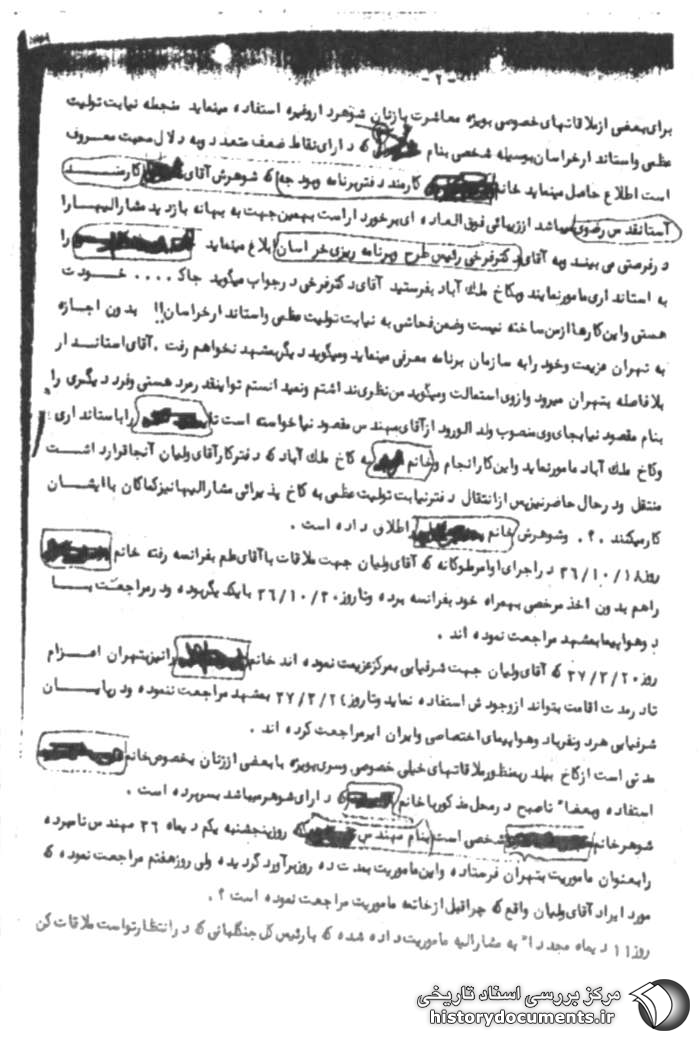 - ٢ -
برای بعضی از ملاقاتهای خصوصی بویژه معاشرت با زنان شوهردار وغیره استفاده مینماید منجمله نیابت تولیت
عظمی واستاندار خراسان بوسیله شخصی بنام که دارای نقاط ضعف متعدد وبه دلال محبت معروف
است اطلاع حاصل مینماید خانم کارمند دفتر برنامه وبودجه که شوهرش آقای کارمند
آستانقدس رضوی میباشد از زیبائی فوق العاده ای برخورداراست بهمین جهت به بهانه بازدید مشارالیها را
در فرصتی می بیند وبه آقای دکتر فرخی رئیس طرح وبرنامه ریزی خراسان ابلاغ مینماید را
به استانداری مامور نمایند وبکاخ ملک آباد بفرستید آقای دکتر فرخی در جواب میگوید جاک .... خودت
هستی واین کارها از من ساخته نیست وضمن فحاشی به نیابت تولیت عظمی واستاندار خراسان !! بدون اجازه
به تهران عزیمت وخود را به سازمان برنامه معرفی مینماید ومیگوید دیگر بمشهد نخواهم رفت . آقای استاندار
بلافاصله بتهران میرود وازوی استمالت ومیگوید من نظری نداشتم ونمیدانستم تو اینقدر مرد هستی وفرد دیگری را
بنام مقصودنیا بجای وی منصوب ولدالورود از آقای مهندس مقصودنیا خواسته است تا را باستانداری
وکاخ ملک آباد مامور نماید واین کار انجام وخانم به کاخ ملک آباد که دفتر کار آقای ولیان آنجا قرار داشت
منتقل ودر حال حاضر نیز پس از انتقال دفتر نیابت تولیت عظمی به کاخ پذیرائی مشارالیها نیز کماکان با ایشان
کار میکنند .؟. وشوهرش خانم اطلاق داده است .
روز ٢٦/١٠/١٨ در اجرای اوامر ملوکانه که آقای ولیان جهت ملاقات با آقای علم بفرانسه رفته خانم
را هم بدون اخذ مرخصی بهمراه خود بفرانسه برده وتا روز ٢٦/١٠/٢٠ با یکدیگر بوده ودر مراجعت با
دو هواپیما بمشهد مراجعت نموده اند .
روز ٢٧/٢/٢٠ که آقای ولیان جهت شرفیابی بمرکز عزیمت نموده اند خانم را نیز بتهران اعزام
تا در مدت اقامت بتواند از وجودش استفاده نماید وتا روز ٢٧/٢/٢٤ بمشهد مراجعت ننموده ودر پایان
شرفیابی هر دو نفر با دو هواپیمای اختصاصی وایران ایر مراجعت کرده اند .
مدتی است از کاخ بیلدر بمنظور ملاقاتهای خیلی خصوصی وسری بویژه با بعضی از زنان بخصوص خانم
استفاده وبعضا" تا صبح در محل مذکور با خانم که دارای شوهر میباشد بسر برده است .
شوهر خانم شخصی است بنام مهندس که روز پنجشنبه یکم دیماه ٢٦ مهندس نامبرده
را بعنوان ماموریت بتهران فرستاده واین ماموریت بمدت ده روز برآورد گردیده ولی روز هفتم مراجعت نموده که
مورد ایراد آقای ولیان واقع که چرا قبل از خاتمه ماموریت مراجعت نموده است ؟ .
روز ١١ دیماه مجددا" به مشارالیه ماموریت داده شده که با رئیس کل جنگلبانی که در انتظار تواست ملاقات کن
مرکز بررسی اسناد تاریخی
historydocuments.ir